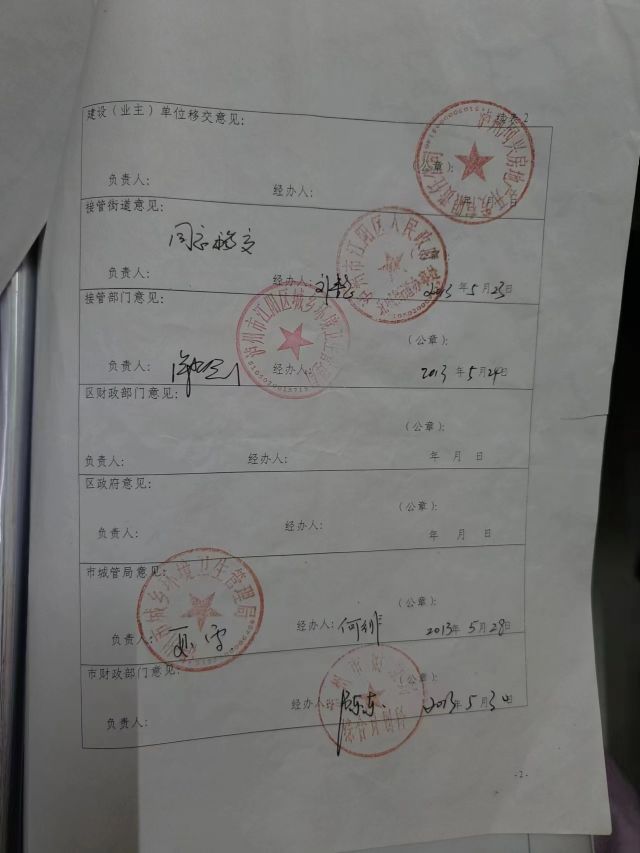 续表2
建设（业主）单位移交意见：
（公章）：
负责人：
经办人：
年 月 日
接管街道意见：
同意移交
负责人：
经办人：
2013年5月23日
接管部门意见：
泸州市江阳区城乡环境卫生管理
（公章）：
负责人：
经办人：
2013年5月24日
区财政部门意见：
（公章）：
负责人：
经办人：
年 月 日
区政府意见：
（公章）：
负责人：
经办人：
年 月 日
市城管局意见：
市城乡环境卫生管理局
（公章）：
负责人：
经办人：
2013年5月29日
市财政部门意见：
（公章）：
负责人：
经办人：
2013年5月30日
-2-